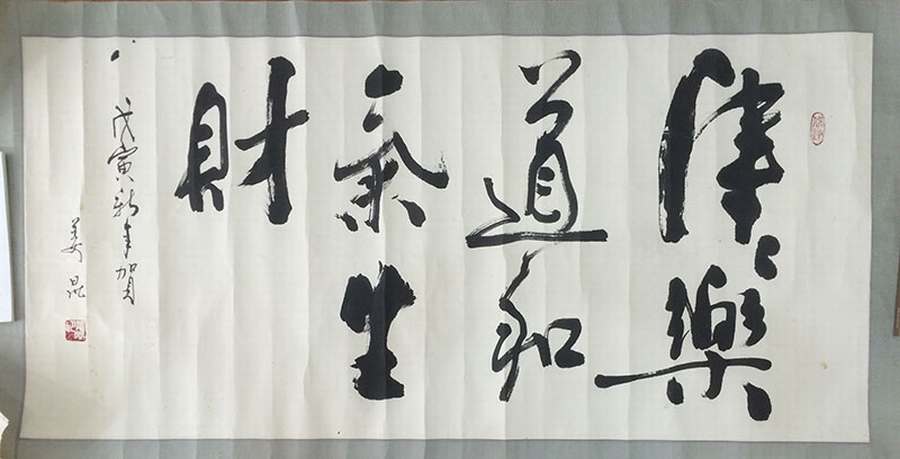 津津樂
道和
氣生
財
戊寅新年賀
姜昆